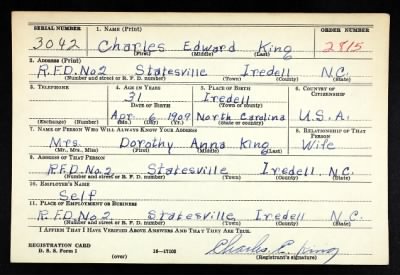 SERIAL NUMBER 1. NAME (Print) ORDER NUMBER
3042 Charles Edward King 2815
(First) (Middle) (Last)
2. ADDRESS (Print)
R.F.D. No 2 Statesville Iredell N.C.
(Number and street or R. F. D. number) (Town) (County) (State)
3. TELEPHONE 4. AGE IN YEARS 5. PLACE OF BIRTH 6. COUNTRY OF CITIZENSHIP
31 Iredell
DATE OF BIRTH (Town or county)
Apr. 6 1909 North Carolina U.S.A.
(Exchange) (Number) (Mo.) (Day) (Yr.) (State or country)
7. NAME OF PERSON WHO WILL ALWAYS KNOW YOUR ADDRESS 8. RELATIONSHIP OF THAT PERSON
Mrs. Dorothy Anna King Wife
(Mr., Mrs., Miss) (First) (Middle) (Last)
9. ADDRESS OF THAT PERSON
R.F.D. No 2 Statesville Iredell, N.C.
(Number and street or R. F. D. number) (Town) (County) (State)
10. EMPLOYER'S NAME
Self
11. PLACE OF EMPLOYMENT OR BUSINESS
R.F.D. No 2 Statesville, Iredell N.C.
(Number and street or R. F. D. number) (Town) (County) (State)
I AFFIRM THAT I HAVE VERIFIED ABOVE ANSWERS AND THAT THEY ARE TRUE.
REGISTRATION CARD
D. S. S. Form 1 16—17105 Charles E. King
(over) (Registrant's signature)